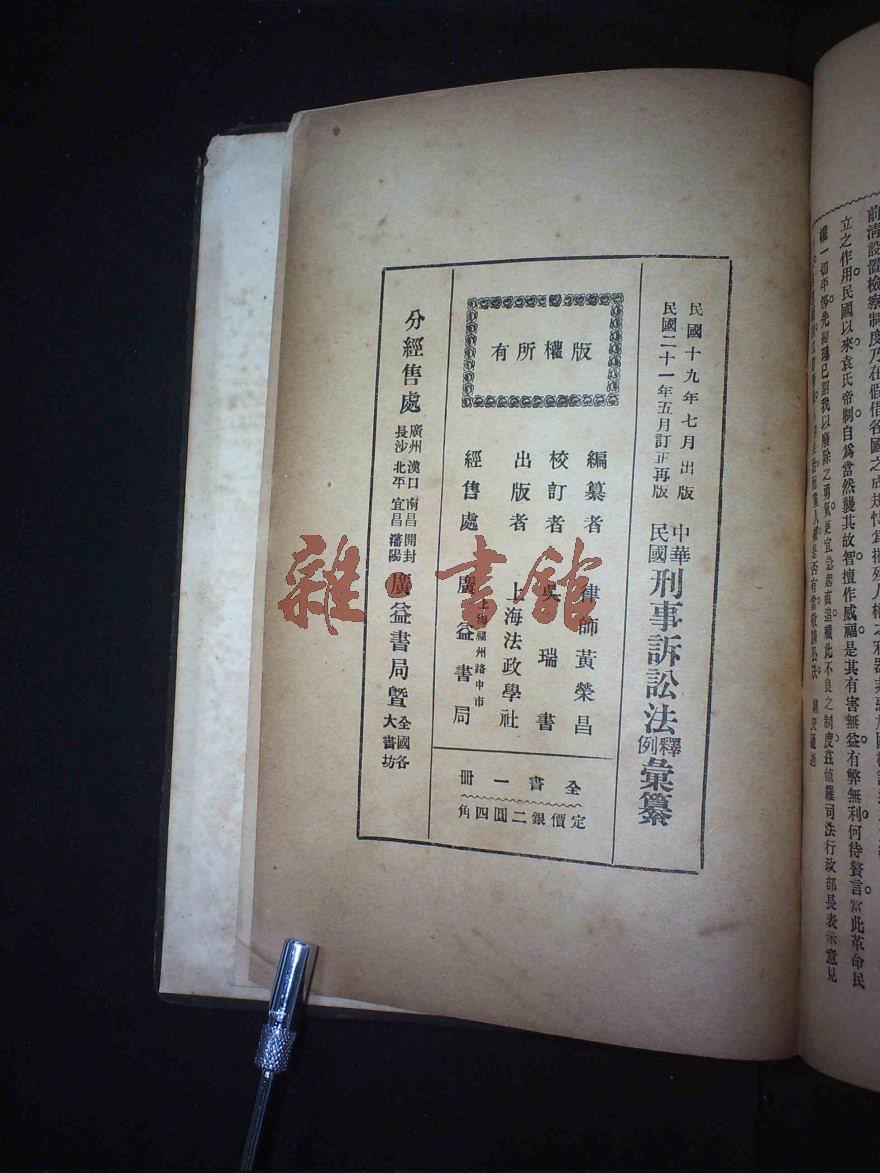 民國十九年七月出版
民國二十一年五月訂正再版
中華民國刑事訴訟法釋例彙纂
版權所有
編纂者 律師黃榮昌
校訂者 吳瑞書
出版者 上海法政學社
經售處 上海福州路中市廣益書局
全書一冊
定價銀二圓四角
分經售處 廣州 漢口 南昌 開封 長沙 北平 宜昌 瀋陽 廣益書局暨全國各大書坊
雜·書館
前清設置檢察制度乃在假借各國之成規
立之作用民國以來袁氏帝制自爲當然襲其故智擅作威福是其有害無益有弊無利何待贅言當此革命民
權一切平等先總理已詔我以廢除之勇氣更宜急起直追殲此不良之制度茲值羅司法行政部長表示意見